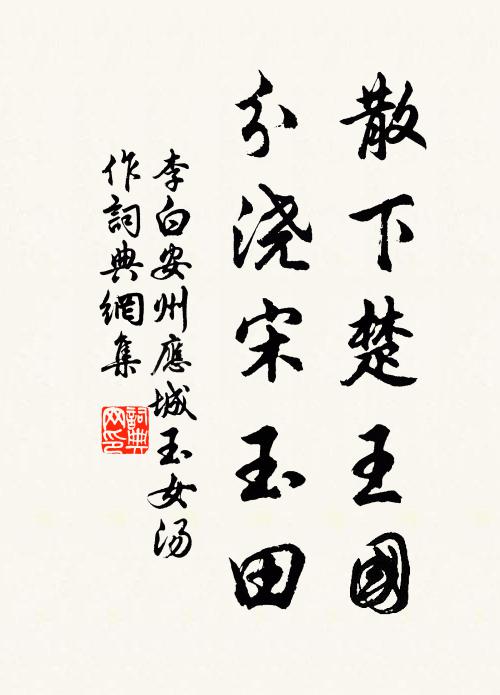 散下楚王國
分浇宋玉田
李白安州應城玉女湯
作詞典網集
詞典
网印